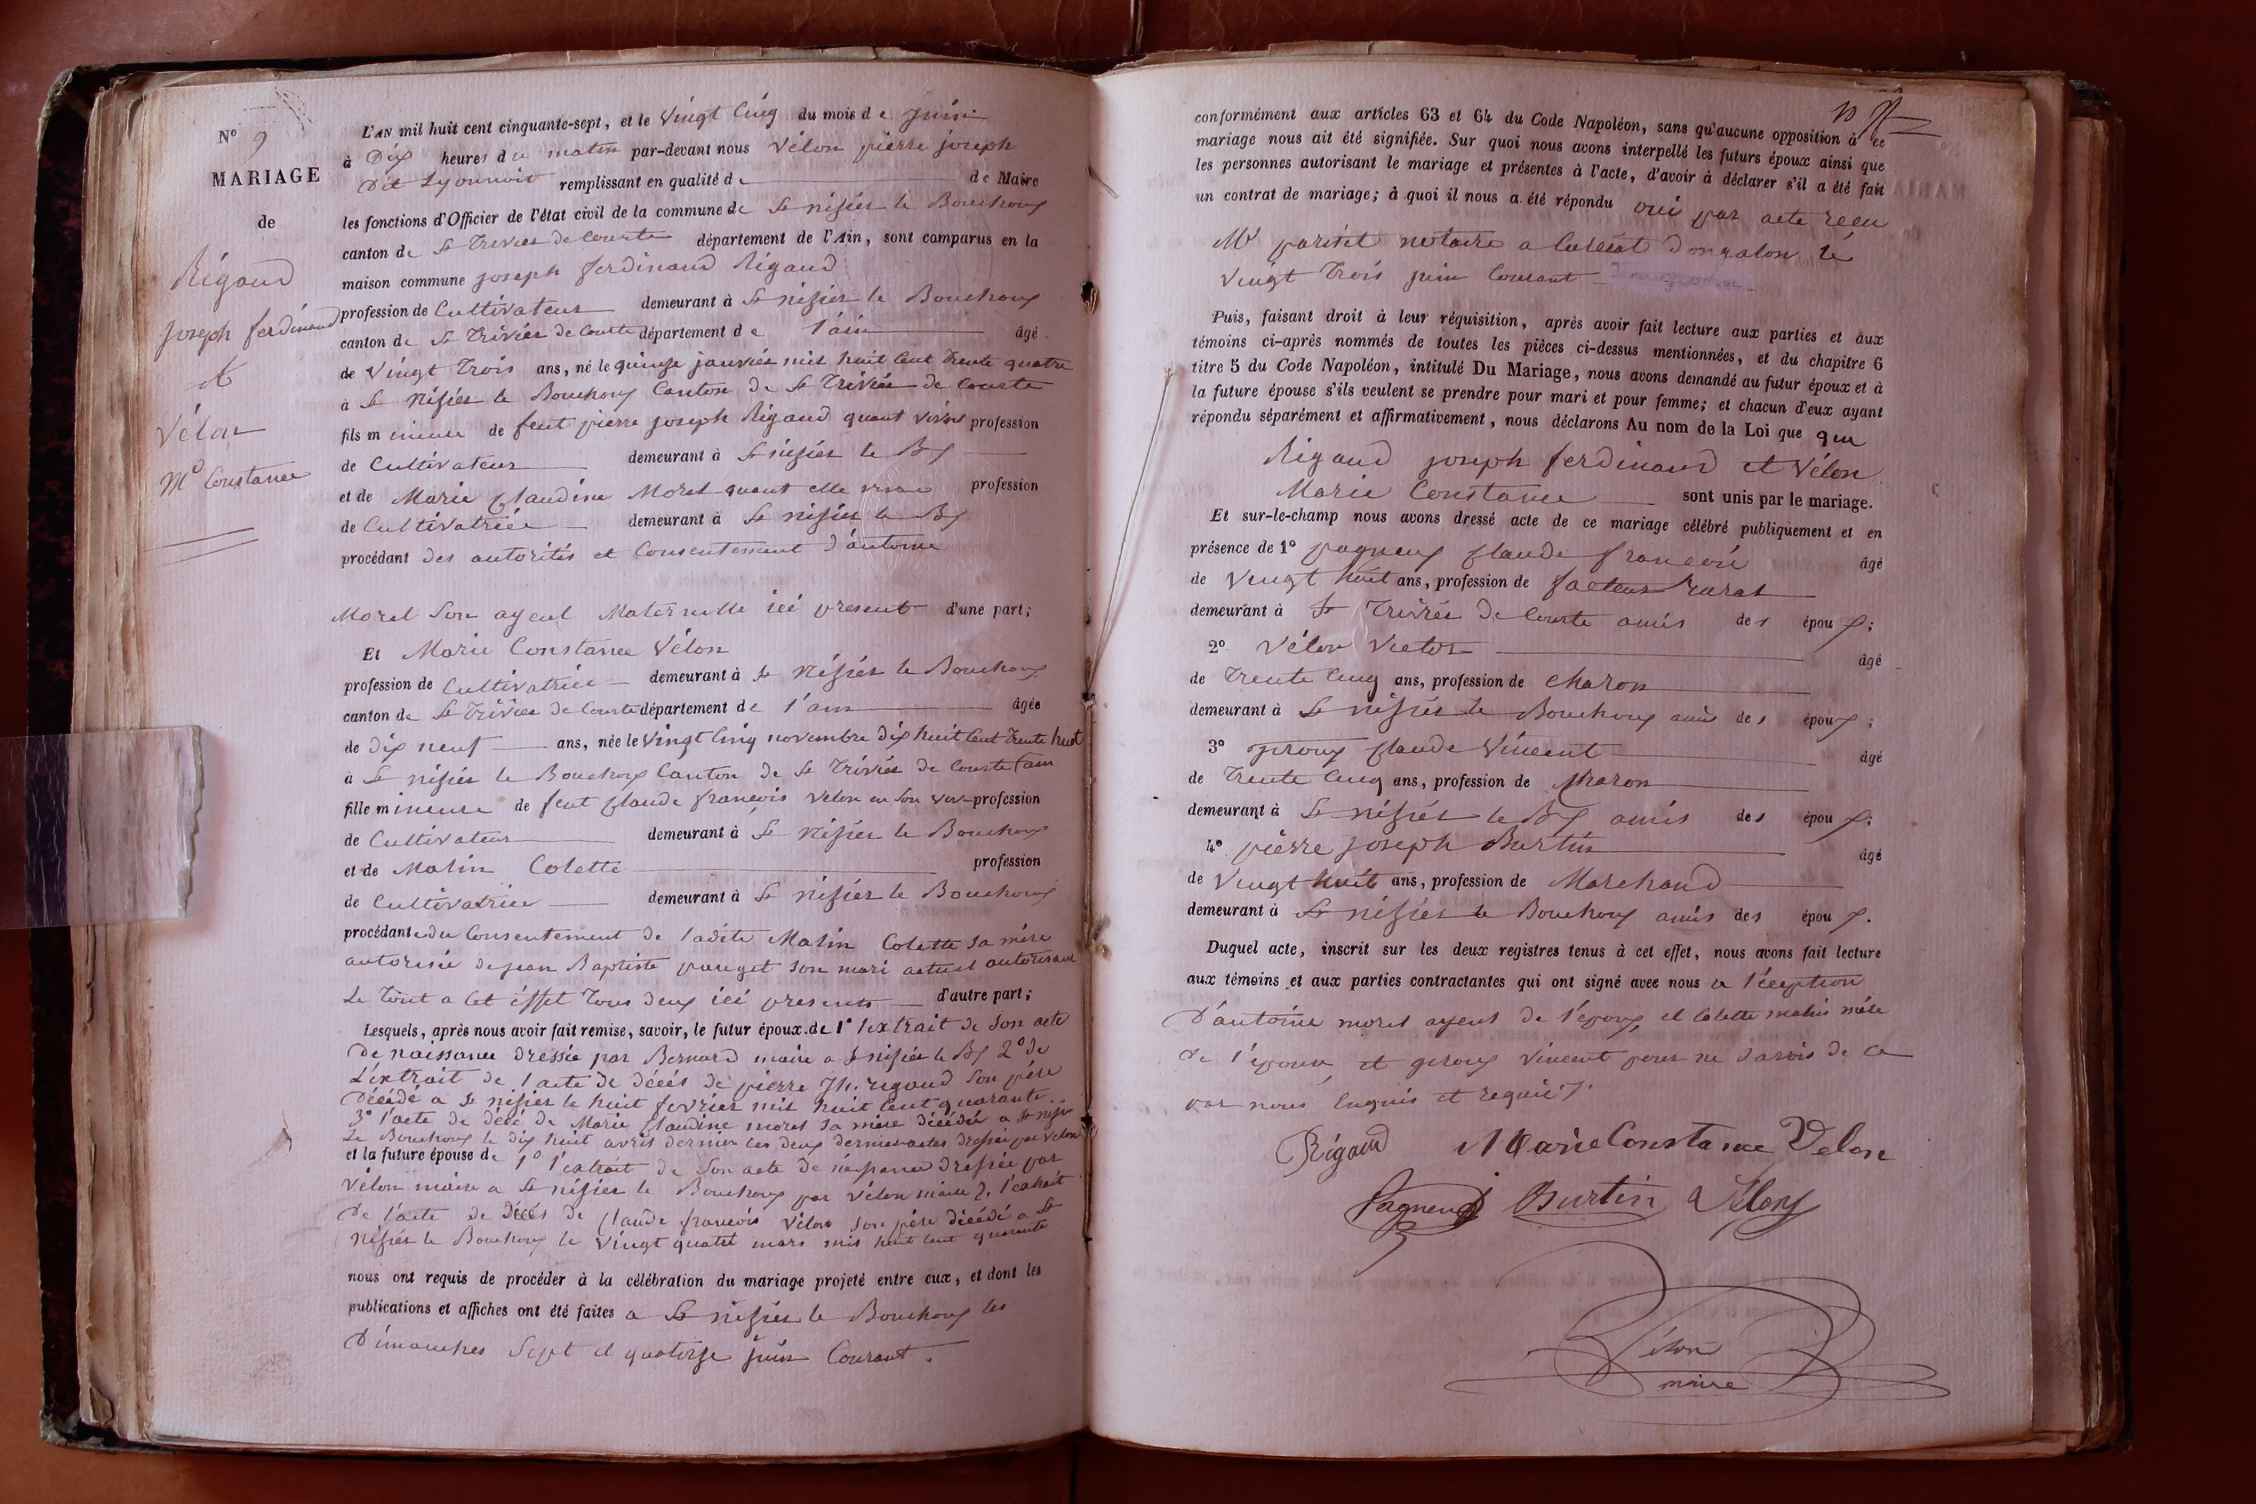 N° 9
MARIAGE
de
Rigaud
Joseph ferdinand
et
Vélon
Mie Constance
L'AN mil huit cent cinquante-sept, et le Vingt Cinq du mois de juin
à Dix heures du matin par-devant nous Vélon pierre joseph
Dit Lyonnois remplissant en qualité de de Maire
les fonctions d'Officier de l'état civil de la commune de St nisier le Bouchoux
canton de St Trivier de Courte département de l'Ain, sont comparus en la
maison commune joseph ferdinand Rigaud
profession de Cultivateur demeurant à St nisier le Bouchoux
canton de St Trivier de Courte département de l'ain âgé
de Vingt Trois ans, né le quinze janvier mil huit Cent Trente quatre
à St Nisier le Bouchoux Canton de St Trivier de Courte
fils mineur de feut pierre joseph Rigaud quant vivoit profession
de Cultivateur demeurant à St nisier le Bx
et de Marie Claudine Morel quant elle vivoit profession
de Cultivatrice demeurant à St nisier le Bx
procédant des autorités et Consentement d'antoine
Morel Son ayeul Maternelle ici present d'une part;
Et Marie Constance Vélon
profession de Cultivatrice demeurant à St Nisier le Bouchoux
canton de St Trivier de Courte département de l'ain âgée
de dix neuf ans, née le Vingt Cinq novembre dix huit Cent Trente huit
à St nisier le Bouchoux Canton de St Trivier de Courte (ain
fille mineure de feut Claude françois Velon en son viv. profession
de Cultivateur demeurant à St Nisier le Bouchoux
et de Matin Colette profession
de Cultivatrice demeurant à St nisier le Bouchoux
procédante du Consentement de ladite Matin Colette sa mère
autorisée de jean Baptiste pauget son mari actuel autorisant
Le Tout a Cet éffet Tous deux ici presents d'autre part;
Lesquels, après nous avoir fait remise, savoir, le futur époux de 1° l'extrait de Son acte
De naissance dressée par Bernard maire a St nisier le Bx 2° de
L'extrait de l'acte de décés de pierre Jh. rigaud Son père
Décédé a St nisier le huit fevrier mil huit Cent quarante
3° l'acte de décé de Marie Claudine morel sa mère décédée a St nisier
Le Bouchoux le dix huit avril dernier les deux derniers actes dressée par Velon
et la future épouse de 1° l'extrait de Son acte de naissance dressée par
Vélon maire a St nisier le Bouchoux par Vélon maire 2. l'extrait
De l'acte de décés de Claude francois Vélon Son père décédé a St
Nisier le Bouchoux le Vingt quatre mars mil huit Cent quarante
nous ont requis de procéder à la célébration du mariage projeté entre eux, et dont les
publications et affiches ont été faites a St nisier le Bouchoux les
Dimanches Sept et quatorze juin Courant.
conformément aux articles 63 et 64 du Code Napoléon, sans qu'aucune opposition à ce
mariage nous ait été signifiée. Sur quoi nous avons interpellé les futurs époux ainsi que
les personnes autorisant le mariage et présentes à l'acte, d'avoir à déclarer s'il a été fait
un contrat de mariage; à quoi il nous a été répondu oui par acte recu
notaire a
Vingt Trois juin Courant
Puis, faisant droit à leur réquisition, après avoir fait lecture aux parties et aux
témoins ci-après nommés de toutes les pièces ci-dessus mentionnées, et du chapitre 6
titre 5 du Code Napoléon, intitulé Du Mariage, nous avons demandé au futur époux et à
la future épouse s'ils veulent se prendre pour mari et pour femme; et chacun d'eux ayant
répondu séparément et affirmativement, nous déclarons Au nom de la Loi que que
Rigaud joseph ferdinand et Vélon
Marie Constance sont unis par le mariage.
Et sur-le-champ nous avons dressé acte de ce mariage célébré publiquement et en
présence de 1° pagneux Claude francois âgé
de Vingt huit ans, profession de facteur rural
demeurant à St Trivier de Courte amis des époux;
2° Vélon Victor âgé
de Trente Cinq ans, profession de charon
demeurant à St nisier le Bouchoux amis des époux;
3° Claude Vincent âgé
de Trente Cinq ans, profession de Charon
demeurant à St nisier le Bx amis des époux;
4° pierre joseph Burtin âgé
de Vingt huit ans, profession de Marchand
demeurant à St nisier le Bouchoux amis des époux.
Duquel acte, inscrit sur les deux registres tenus à cet effet, nous avons fait lecture
aux témoins et aux parties contractantes qui ont signé avec nous a l'éception
D'antoine morel ayeul de l'époux et Colette matin mère
de l'epouse et Vincent pour ne savoir de ce
par nous Enquis et requis
Rigaud Marie Constance Velon
Pagneux Burtin Vélon
Vélon
maire